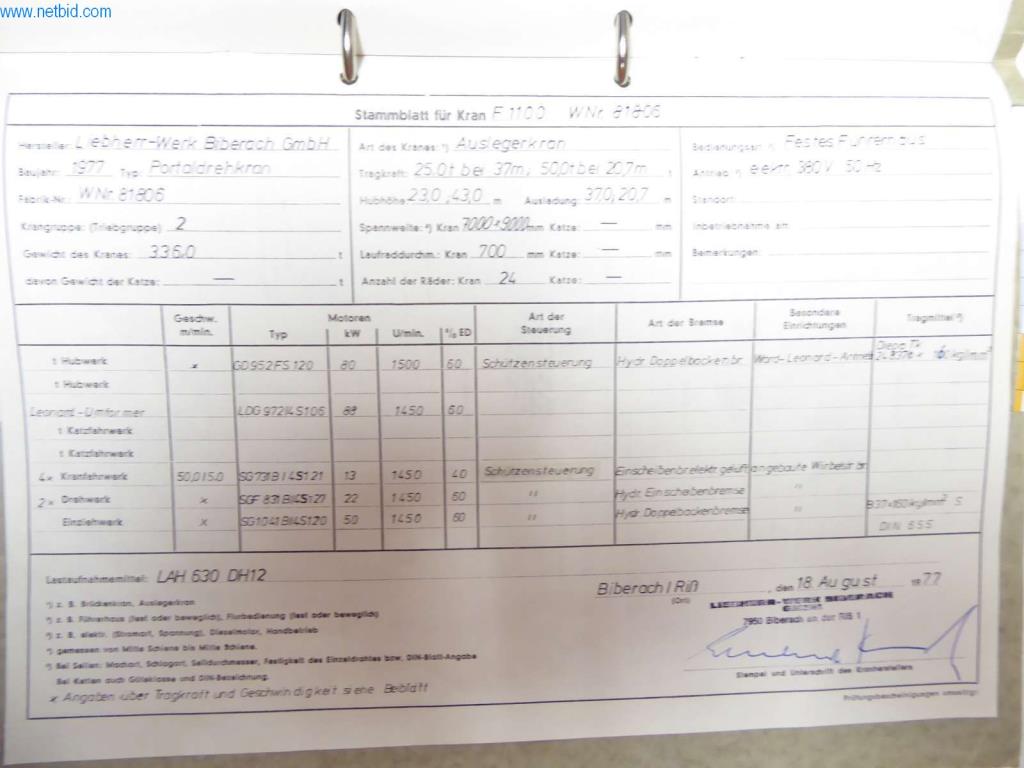 www.netbid.com
Stammblatt für Kran F 1100 WNr. 81806
Hersteller: Liebherr-Werk Biberach GmbH Art des Kranes: ¹) Auslegerkran Bedienungsart ²)
Baujahr: 1977 Typ: Portaldrehkran Tragkraft: 25,0t bei 37m; 50,0t bei 20,7m t Antrieb ³) elektr. 380V 50 Hz
Fabrik-Nr.: WNr. 81806 Hubhöhe 23,0, 43,0 m Ausladung: 37,0; 20,7 m Standort:
Krangruppe: (Triebgruppe) 2 Spannweite: ⁴) Kran 7000 × 9000 mm Katze: — mm Inbetriebnahme am:
Gewicht des Kranes: 336,0 t Laufraddurchm.: Kran 700 mm Katze: — mm Bemerkungen:
davon Gewicht der Katze: — t Anzahl der Räder: Kran 24 Katze: —
Geschw. m/min. Motoren Typ kW U/min. % ED Art der Steuerung Art der Bremse Besondere Einrichtungen Tragmittel ⁵)
t Hubwerk x GD952FS120 80 1500 60 Schützensteuerung Hydr. Doppelbackenbr. Ward-Leonard-
t Hubwerk
Leonard-Umformer 1450 60
t Katzfahrwerk
t Katzfahrwerk
4x Kranfahrwerk 13 1450 40 Schützensteuerung
2x Drehwerk x 22 1450 60 " Hydr. Einscheibenbremse "
Einziehwerk x 50 1450 60 " Hydr. Doppelbackenbremse "
DIN 655
Lastaufnahmemittel: LAH 630 DH12 Biberach / Riß, den 18. August 1977
(Ort)
¹) z. B. Brückenkran, Auslegerkran LIEBHERR-WERK BIBERACH
²) z. B. Führerhaus (fest oder beweglich), Flurbedienung (fest oder beweglich) 7950 Biberach an der Riß 1
³) z. B. elektr. (Stromart, Spannung), Dieselmotor, Handbetrieb
⁴) gemessen von Mitte Schiene bis Mitte Schiene.
⁵) Bei Seilen: Machart, Schlagart, Seildurchmesser, Festigkeit des Einzeldrahtes bzw. DIN-Blatt-Angabe Stempel und Unterschrift des Kranherstellers
Bei Ketten auch Güteklasse und DIN-Bezeichnung.
x Angaben über Tragkraft und Geschwindigkeit siehe Beiblatt Prüfungsbescheinigungen umseitig!